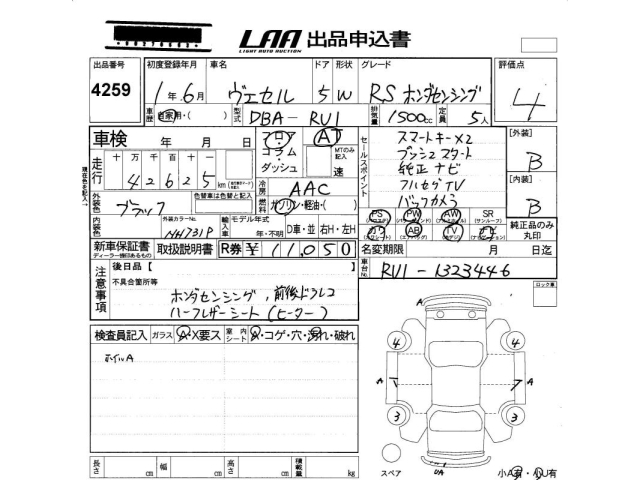 LAA 出品申込書
LIGHT AUTO AUCTION
出品番号 初度登録年月 車名 ドア 形状 グレード 評価点
4259 1年 6月 ヴェゼル 5 W RS ホンダセンシング 4
車歴 自家用・( ) 型式 DBA-RU1 排気量 1500cc 定員 5人
車検 年 月 日 フロア AT
コラム MTのみ記入
ダッシュ 速
セールスポイント スマートキー×2
プッシュスタート
純正ナビ
フルセグTV
バックカメラ
[外装]
B
[内装]
B
走行 十万千百十
42625 km
現在色を記入
外装色 ブラック 色替車は色替と記入
冷房 AAC
燃料 ガソリン・軽油・( )
内装色 外装カラーNo. NH731P 輸入車 モデル年式 年・不明 D車・並 右H・左H
PS PW AW SR
AB TV ナビ
純正品のみ丸印
新車保証書 取扱説明書 R券 ¥11,050 名変期限 月 日迄
ディーラー捺印あるもの
車台No. RU1-1323446
注意事項 後日品【 】
不具合箇所等
ホンダセンシング，前後ドラレコ
ハーフレザーシート(ヒーター)
ロック車
検査員記入 ガラス A・X要ス 室内シート A・コゲ・穴・汚れ・破れ
ホイルA
A
4 4
A A 7
3 3
スペア UA 小A有・小U有
長さ cm 幅 cm 高さ cm 積載量 kg